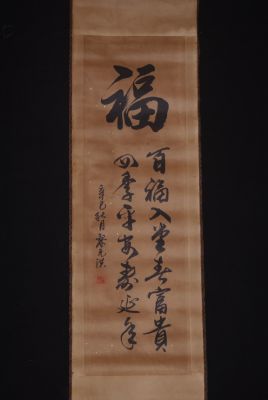 福
百福入堂春富貴
四季平安壽延年
辛巳秋月黎元洪